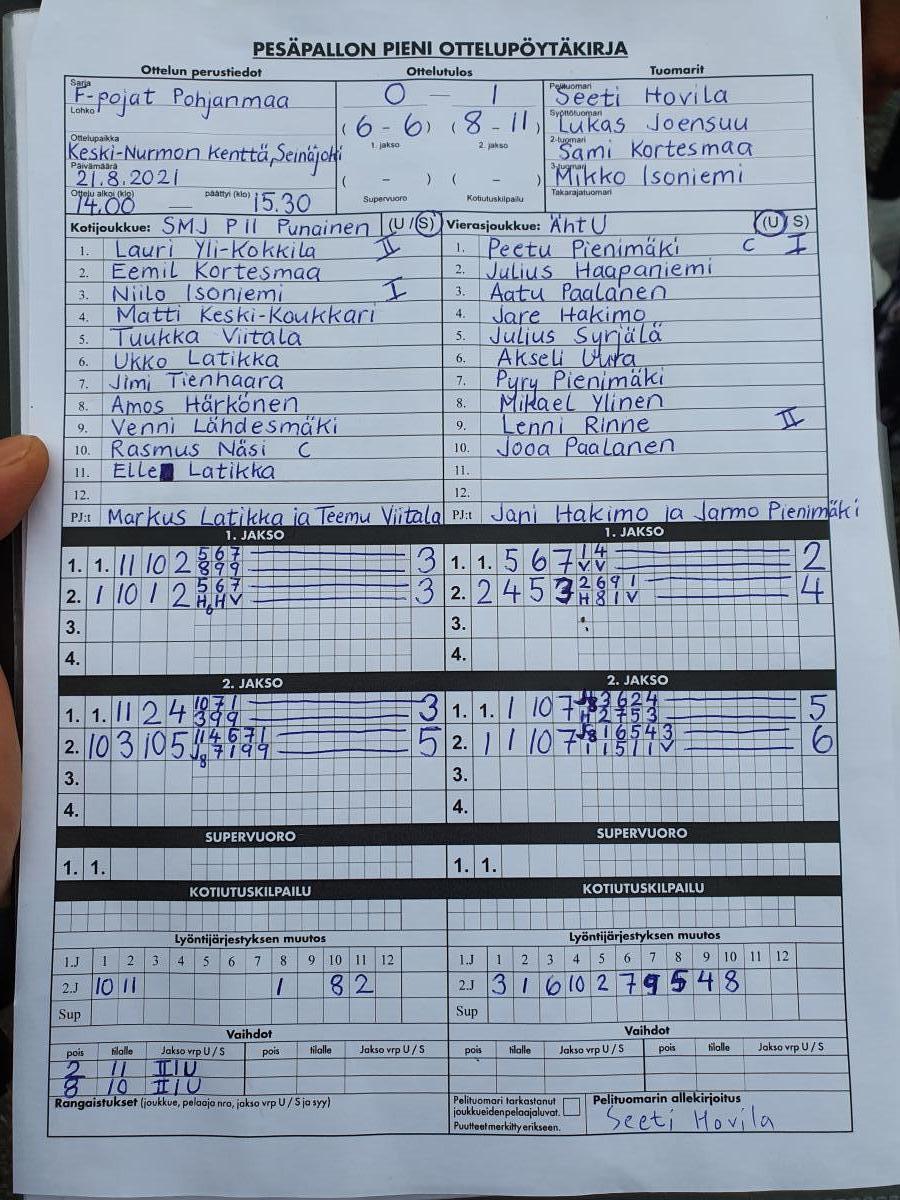 PESÄPALLON PIENI OTTELUPÖYTÄKIRJA
Ottelun perustiedot Ottelutulos Tuomarit
Sarja F-pojat Pohjanmaa 0 – 1 Pelituomari Seeti Hovila
Lohko (6-6) (8-11) Syöttötuomari Lukas Joensuu
Ottelupaikka Keski-Nurmon Kenttä, Seinäjoki 1. jakso 2. jakso 2-tuomari Sami Kortesmaa
Päivämäärä 21.8.2021 ( – ) ( – ) 3-tuomari Mikko Isoniemi
Ottelu alkoi (klo) 14.00 — päättyi (klo) 15.30 Supervuoro Kotiutuskilpailu Takarajatuomari
Kotijoukkue: SMJ P11 Punainen (U/S) Vierasjoukkue: ÄhtU (U/S)
1. Lauri Yli-Kokkila II 1. Peetu Pienimäki C I
2. Eemil Kortesmaa 2. Julius Haapaniemi
3. Niilo Isoniemi I 3. Aatu Paalanen
4. Matti Keski-Koukkari 4. Jare Hakimo
5. Tuukka Viitala 5. Julius Syrjälä
6. Ukko Latikka 6. Akseli Uura
7. Jimi Tienhaara 7. Pyry Pienimäki
8. Amos Härkönen 8. Mikael Ylinen
9. Venni Lähdesmäki 9. Lenni Rinne II
10. Rasmus Näsi C 10. Jooa Paalanen
11. Elle Latikka 11.
12. 12.
PJ:t Markus Latikka ja Teemu Viitala PJ:t Jani Hakimo ja Jarmo Pienimäki
1. JAKSO 1. JAKSO
1. 1. 11 10 2 5 6 7 3 1. 1. 5 6 7 1 4 2
8 9 9 V V
2. 1 10 1 2 5 6 7 3 2. 2 4 5 3 2 6 9 1 4
H H V H 8 1 V
3. 3.
4. 4.
2. JAKSO 2. JAKSO
1. 1. 11 2 4 10 7 1 3 1. 1. 1 10 7 3 6 2 4 5
3 9 9 H 2 7 5 3
2. 10 3 10 5 11 4 6 7 1 5 2. 1 1 10 7 1 6 5 4 3 6
7 1 9 9 1 1 5 1 1 V
3. 3.
4. 4.
SUPERVUORO SUPERVUORO
1. 1. 1. 1.
KOTIUTUSKILPAILU KOTIUTUSKILPAILU
Lyöntijärjestyksen muutos Lyöntijärjestyksen muutos
1.J 1 2 3 4 5 6 7 8 9 10 11 12 1.J 1 2 3 4 5 6 7 8 9 10 11 12
2.J 10 11 1 8 2 2.J 3 1 6 10 2 7 9 5 4 8
Sup Sup
Vaihdot Vaihdot
pois tilalle Jakso vrp U / S pois tilalle Jakso vrp U / S pois tilalle Jakso vrp U / S pois tilalle Jakso vrp U / S
2 11 II 1 U
8 10 II 1 U
Rangaistukset (joukkue, pelaaja nro, jakso vrp U / S ja syy) Pelituomari tarkastanut joukkueiden pelaajaluvat. Puutteet merkitty erikseen. Pelituomarin allekirjoitus
Seeti Hovila